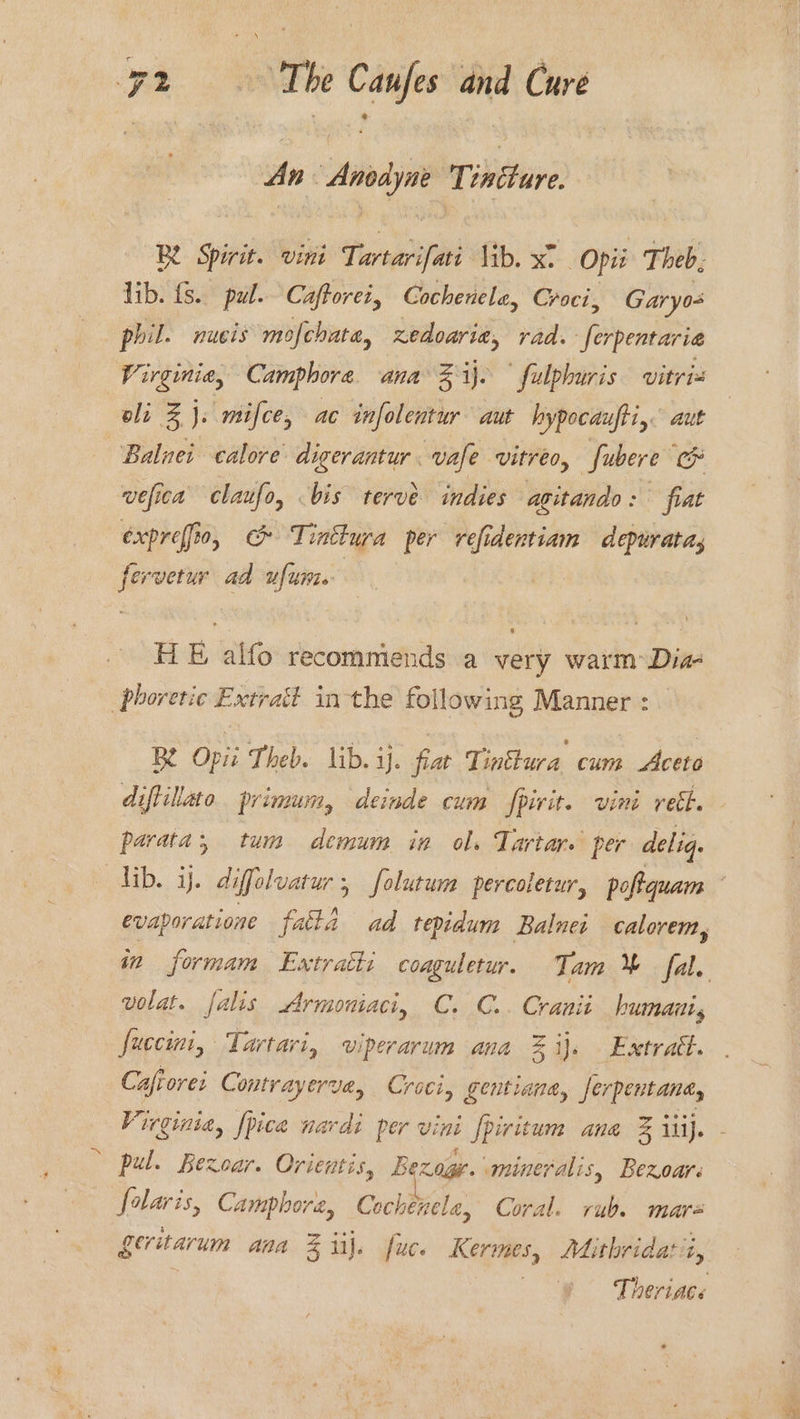 72 The Cauſes and Cure
An Anodyne Tincture.
℞ Spirit. vini Tartariſati lib. x. Opii Theb.
lib. ſs. pul. Caſtorei, Cochenelæ, Croci, Garyo-
phil. nucis moſchatæ, zedoariæ, rad. ſerpentariæ
Virginiæ, Camphoræ ana ℥ ij. ſulphuris vitri-
oli ℥ j. miſce, ac inſolentur aut hypocauſti, aut
Balnei calore digerantur vaſe vitreo, ſubere &
veſica clauſo, bis tervè indies agitando: fiat
expreſſio, & Tinctura per reſidentiam depurata,
ſervetur ad uſum.
HE alſo recommends a very warm Dia-
phoretic Extract in the following Manner:
℞ Opii Theb. lib. ij. fiat Tinctura cum Aceto
diſtillato primum, deinde cum ſpirit. vini rect.
parata; tum demum in ol. Tartar. per deliq.
lib. ij. diſſolvatur; ſolutum percoletur, poſtquam
evaporatione factâ ad tepidum Balnei calorem,
in formam Extracti coaguletur. Tam ſal.
volat. ſalis Armoniaci, C. C. Cranii humani,
ſuccini, Tartari, viperarum ana ℥ ij. Extract.
Caſtorei Contrayervæ, Croci, gentianæ, ſerpentanæ,
Virginiæ, ſpicæ nardi per vini ſpiritum ana ℥ iiij.
pul. Bezoar. Orientis, Bezoar. mineralis, Bezoar.
ſolaris, Camphoræ, Cochenelæ, Coral. rub. mar-
geritarum ana ℥ iij. ſuc. Kermes, Mithridatii,
Theriac.